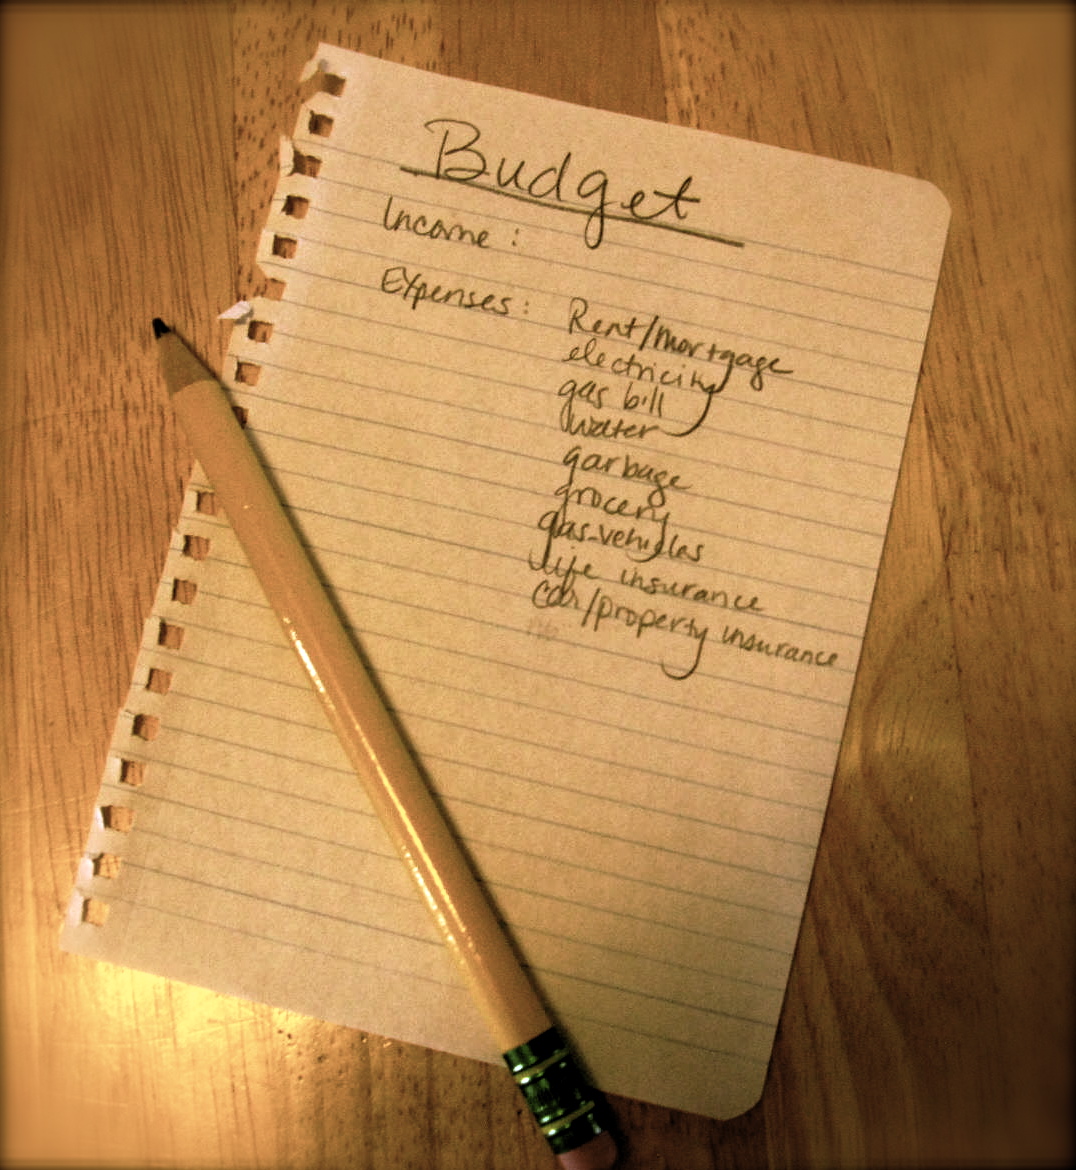 Budget
Income :
Expenses : Rent/mortgage
electricity
gas bill
water
garbage
grocery
gas-vehicles
life insurance
car/property insurance